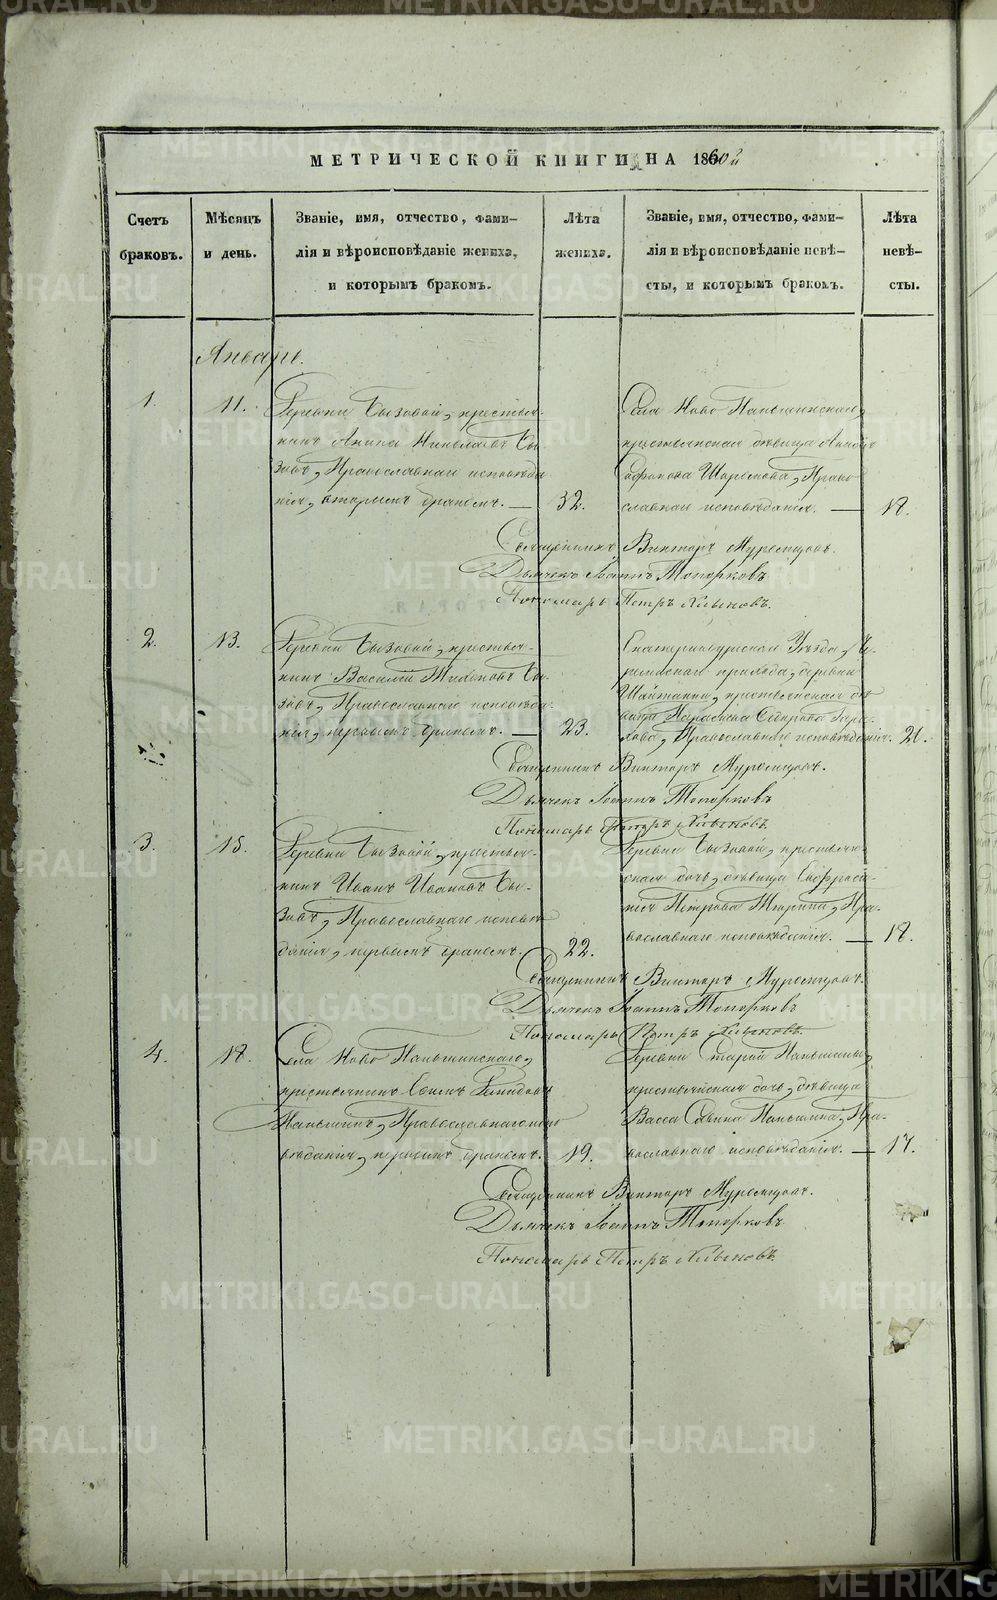 МЕТРИЧЕСКОЙ КНИГИ НА 1860й
Счетъ браковъ.
Мѣсяцъ и день.
Званіе, имя, отчество, фами-
лія и вѣроисповѣданіе жениха,
и которымъ бракомъ.
Лѣта жениха.
Званіе, имя, отчество, фами-
лія и вѣроисповѣданіе невѣ-
сты, и которымъ бракомъ.
Лѣта невѣ-
сты.
Январь.
1.
11.
Деревни Бызовой, крестья-
нинъ Николаевъ Бы-
зовъ, Православнаго исповѣда-
нія, вторымъ бракомъ.
32.
Села Ново Паньшинскаго,
крестьянская дѣвица
Православнаго исповѣданія.
18.
Священникъ Викторъ
Дьячекъ Іоаннъ Топорковъ
Пономарь Петръ Хлыновъ.
2.
13.
Деревни Бызовой, крестья-
нинъ Василій Бы-
зовъ, Православнаго исповѣда-
нія, первымъ бракомъ.
23.
Екатеринбургскаго Уѣзда,
прихода, деревни
Шайтанки, крестьянская дѣ-
вица
Православнаго исповѣданія.
21.
Священникъ Викторъ
Дьячекъ Іоаннъ Топорковъ
Пономарь Петръ Хлыновъ.
3.
15.
Деревни Бызовой, крестья-
нинъ Иванъ Ивановъ Бы-
зовъ, Православнаго исповѣ-
данія, первымъ бракомъ.
22.
Деревни Бызовой, крестьян-
ская дочь, дѣвица
Петрова Пра-
вославнаго исповѣданія.
18.
Священникъ Викторъ
Дьячекъ Іоаннъ Топорковъ
Пономарь Петръ Хлыновъ.
4.
18.
Села Ново Паньшинскаго,
крестьянинъ
Паньшинъ, Православнаго испо-
вѣданія, первымъ бракомъ.
19.
Деревни Старой Паньшины,
крестьянская дочь, дѣвица
Васса Саввина Паньшина, Пра-
вославнаго исповѣданія.
17.
Священникъ Викторъ
Дьячекъ Іоаннъ Топорковъ
Пономарь Петръ Хлыновъ.
METRIKI.GASO-URAL.RU